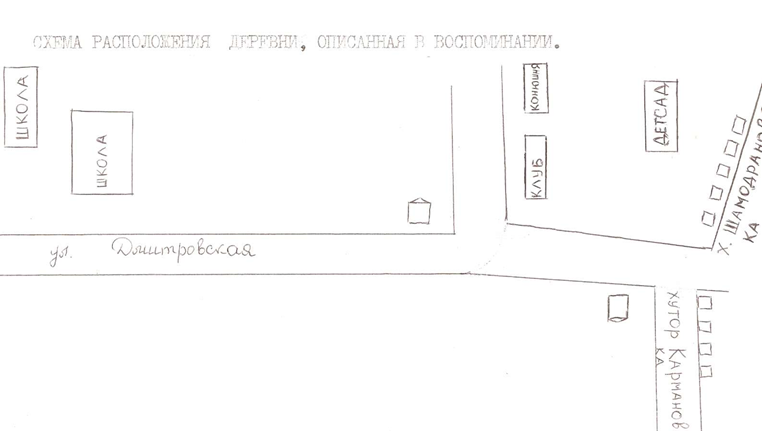 СХЕМА РАСПОЛОЖЕНИЯ ДЕРЕВНИ, ОПИСАННАЯ В ВОСПОМИНАНИИ.
ШКОЛА
ШКОЛА
КОНЮШНЯ
КЛУБ
ДЕТСАД
ул. Дмитровская
Х. ШАМОДРАНОВ
КА
хутор Карманов
КА